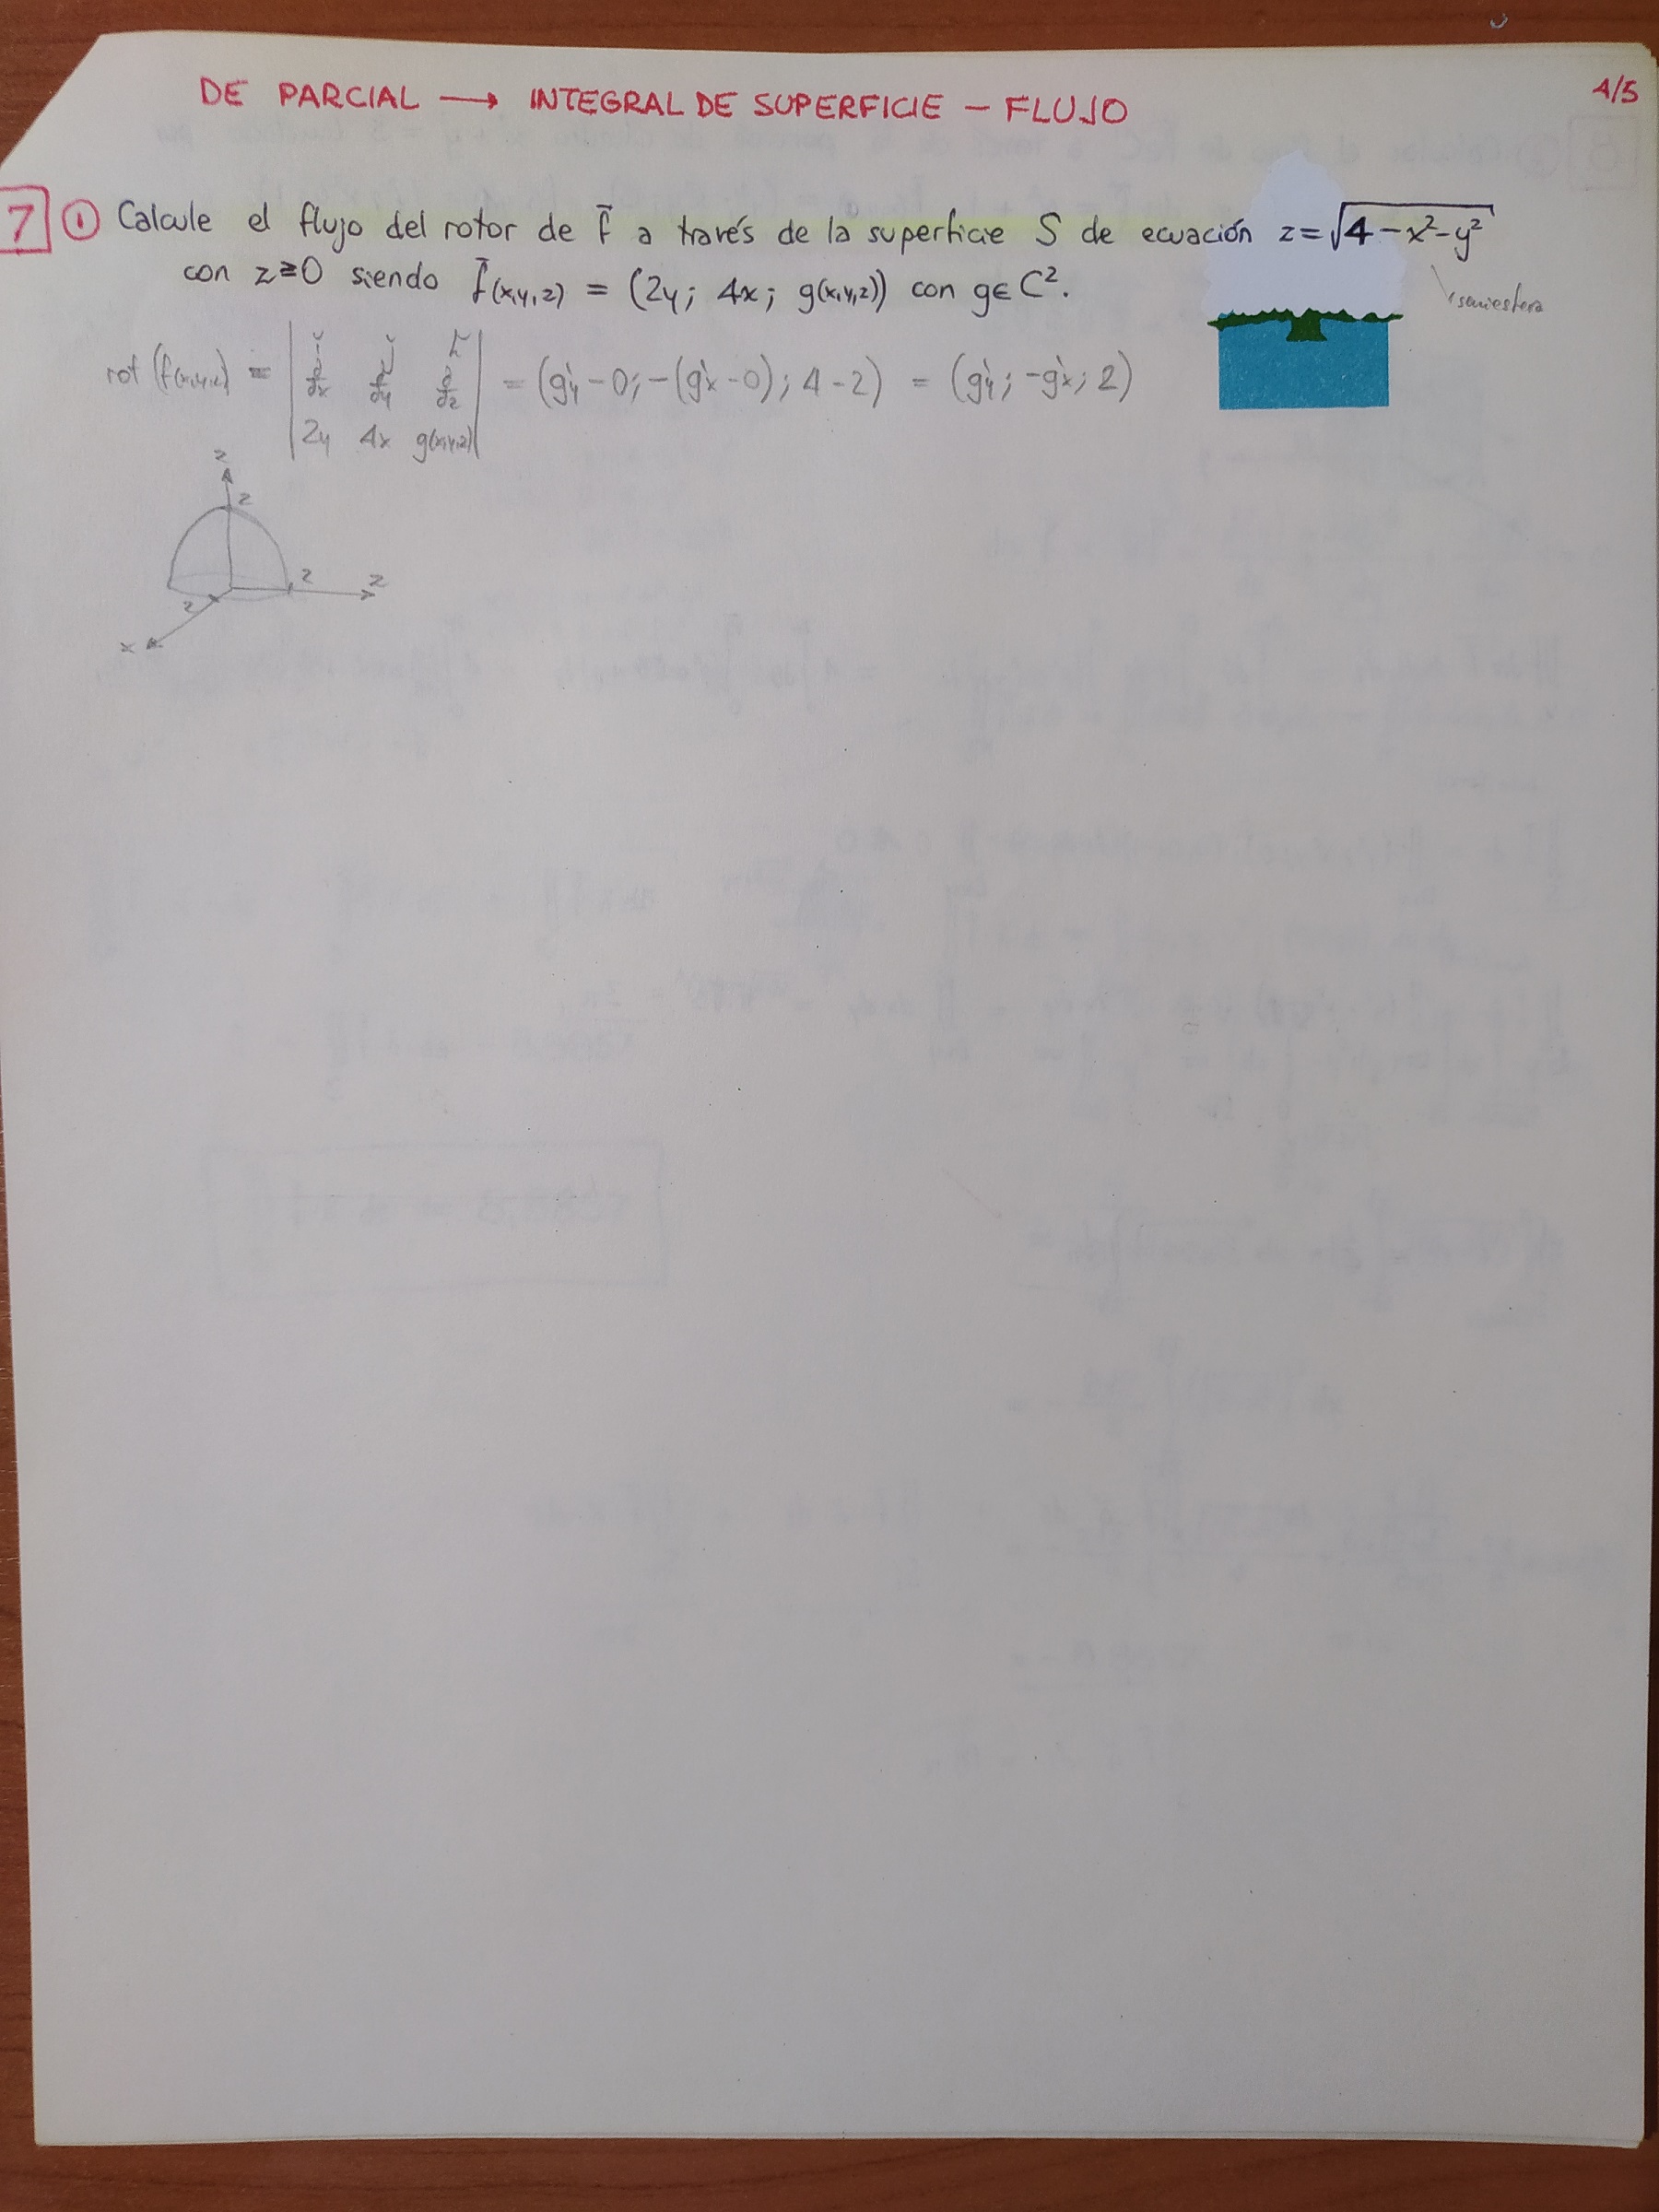 DE PARCIAL → INTEGRAL DE SUPERFICIE – FLUJO
4/5
7 ① Calcule el flujo del rotor de f̄ a través de la superficie S de ecuación z=√(4-x²-y²)
con z≥0 siendo f̄(x,y,z) = (2y; 4x; g(x,y,z)) con g∈C².
semiesfera
rot (f(x,y,z)) = | i j k
∂/∂x ∂/∂y ∂/∂z
2y 4x g(x,y,z) | = (g'y-0; -(g'x-0); 4-2) = (g'y; -g'x; 2)
z
2
2
z
2
x